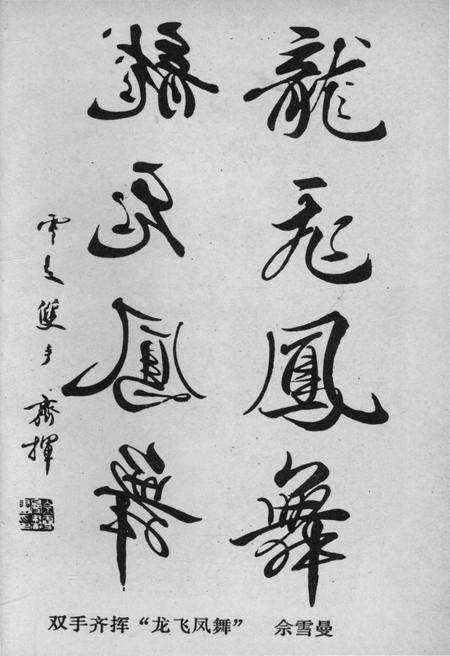 龍飛鳳舞
龍飛鳳舞
雪曼雙手齊揮
双手齐挥“龙飞凤舞” 佘雪曼